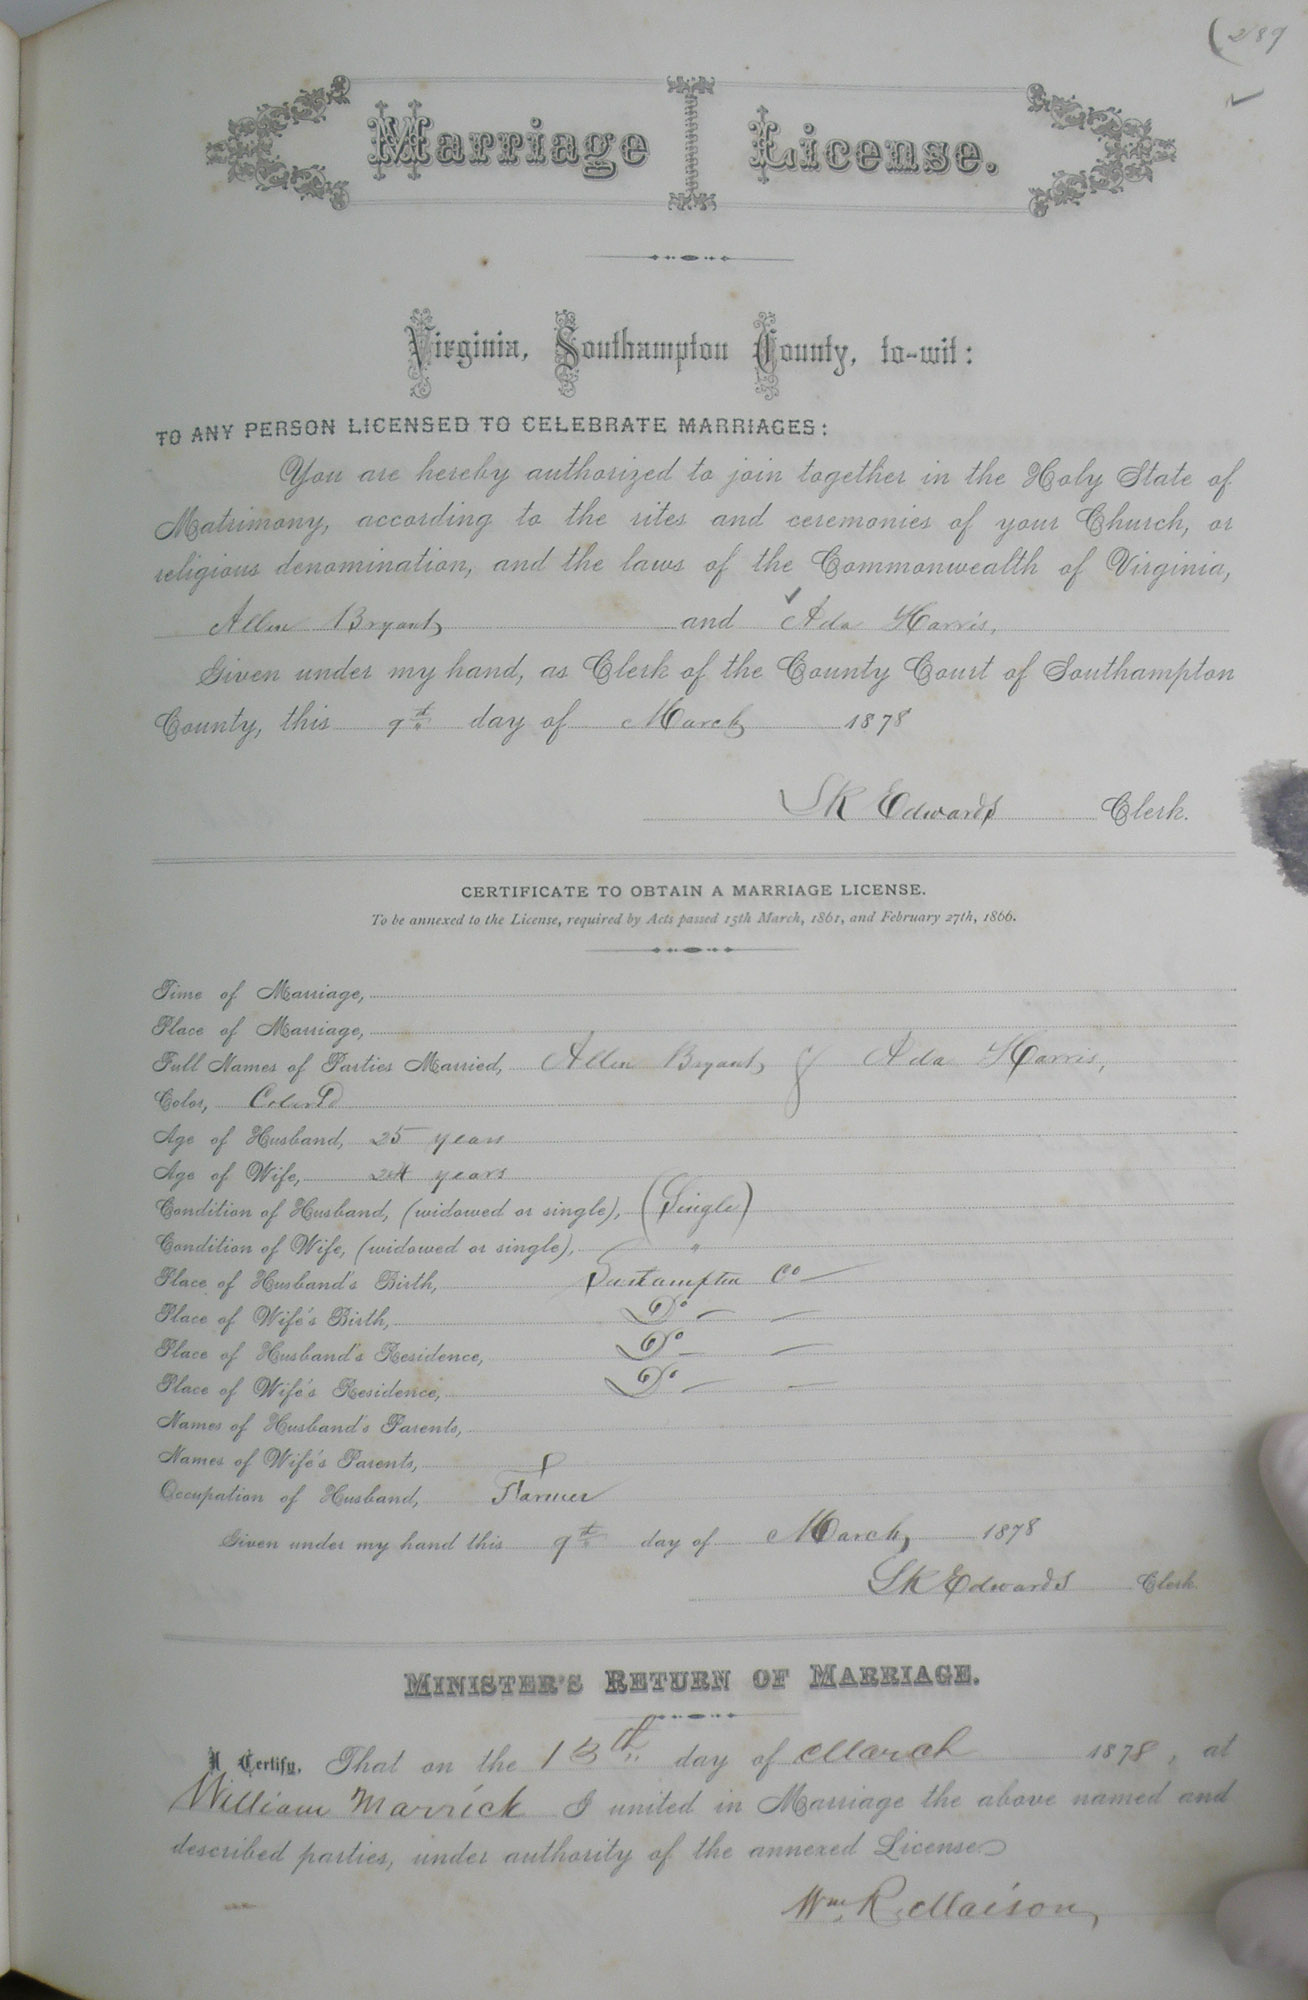 (289
✓
Marriage License.
Virginia, Southampton County, to-wit:
TO ANY PERSON LICENSED TO CELEBRATE MARRIAGES:
You are hereby authorized to join together in the Holy State of
Matrimony, according to the rites and ceremonies of your Church, or
religious denomination, and the laws of the Commonwealth of Virginia,
Allen Bryant, and ✓ Ada Harris,
Given under my hand, as Clerk of the County Court of Southampton
County, this 9th day of March 1878
SK Edwards Clerk.
CERTIFICATE TO OBTAIN A MARRIAGE LICENSE.
To be annexed to the License, required by Acts passed 15th March, 1861, and February 27th, 1866.
Time of Marriage,
Place of Marriage,
Full Names of Parties Married, Allen Bryant, & Ada Harris,
Color, Colord
Age of Husband, 25 years
Age of Wife, 24 years
Condition of Husband, (widowed or single), (Single)
Condition of Wife, (widowed or single), "
Place of Husband's Birth, Southampton Co —
Place of Wife's Birth, Do — —
Place of Husband's Residence, Do — —
Place of Wife's Residence, Do — —
Names of Husband's Parents,
Names of Wife's Parents,
Occupation of Husband, Farmer
Given under my hand this 9th day of March, 1878
SK Edwards Clerk.
MINISTER'S RETURN OF MARRIAGE.
I Certify, That on the 13th day of March 1878, at
William Marrick I united in Marriage the above named and
described parties, under authority of the annexed License.
Wm R. Maison,